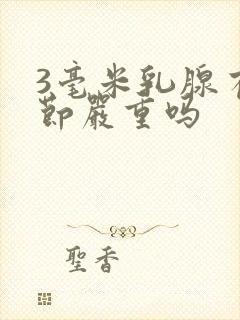 3毫米乳腺
節嚴重吗
聖香